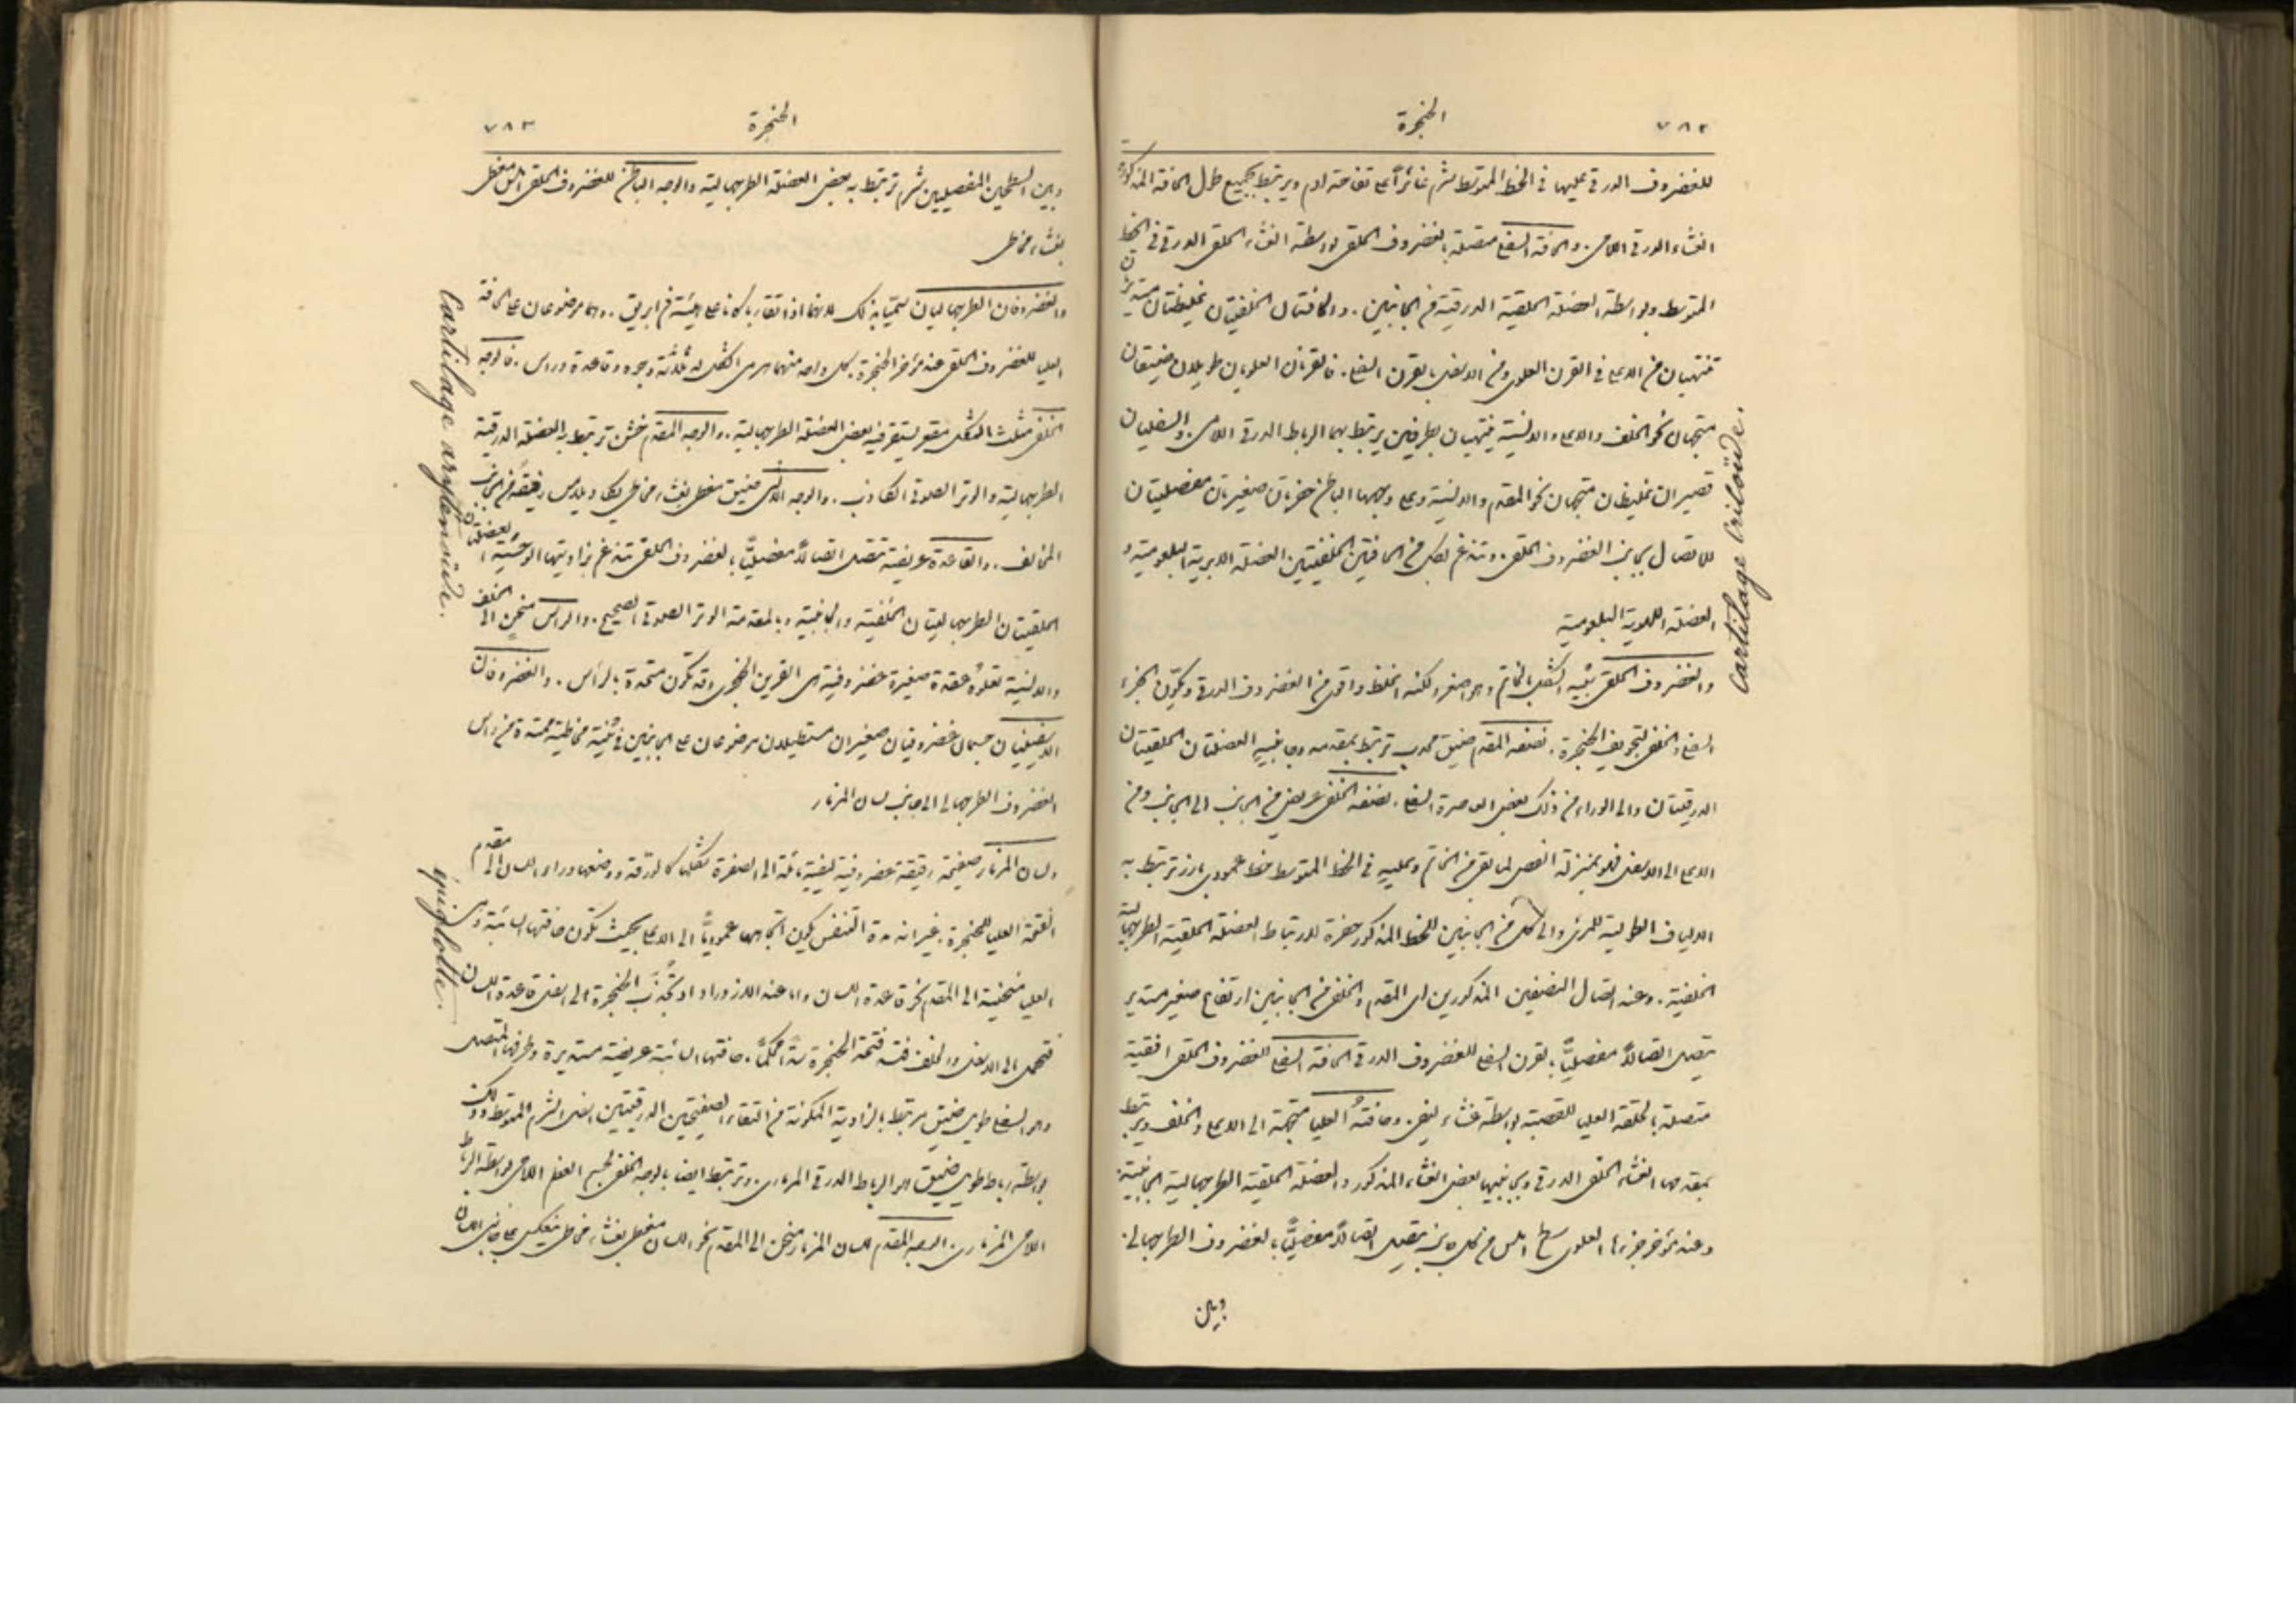 ٧٨٢
الحنجرة
للغضروف الدرقي عليها في الخط المتوسط شرم غائر اعلى تفاحة ادم ويرتبط بجميع طول الحافة المذكورة
الغشاء الدرقي اللامي. والحافة السفلى متصلة بالغضروف الحلقي بواسطة الغشاء الحلقي الدرقي في الخط
المتوسط وبواسطة العضلة الحلقية الدرقية في الجانبين. والحافتان الخلفيتان غليظتان مستديرتان
تنتهيان من الاعلى في القرن العلوي ومن الاسفل بالقرن السفلي. فالقرنان العلويان طويلان ضيقان
متجهان نحو الخلف والاعلى والانسية ينتهيان بطرفين يرتبط بهما الرباط الدرقي اللامي. والسفليان
قصيران غليظان متجهان نحو المقدم والانسية وعلى وجههما الباطن حفرتان صغيرتان مفصليتان
للاتصال بجانب الغضروف الحلقي. وتندغم بكل من الحافتين الخلفيتين العضلة الابرية البلعومية و
العضلة اللهوية البلعومية
والغضروف الحلقي شبيه الشكل بالخاتم وهو اصغر ولكنه اغلظ واقوى من الغضروف الدرقي ويكون الجزء
السفلي والخلفي لتجويف الحنجرة. نصفه المقدم ضيق محدب ترتبط بمقدمه وجانبيه العضلتان الحلقيتان
الدرقيتان والى الوراء من ذلك بعض العاصرة السفلى. نصفه الخلفي عريض من الجانب الى الجانب ومن
الاعلى الى الاسفل فهو بمنزلة الفص لما بقي من الخاتم وعليه في الخط المتوسط خط عمودي بارز ترتبط به
الالياف الطولية للمرئ والى كل من الجانبين للخط المذكور حفرة لارتباط العضلة الحلقية الطرجهالية
الخلفية. وعند اتصال النصفين المذكورين اي المقدم والخلفي من الجانبين ارتفاع صغير مستدير
يتصل اتصالاً مفصلياً بالقرن السفلي للغضروف الدرقي الحافة السفلى للغضروف الحلقي افقية
متصلة بالحلقة العليا للقصبة بواسطة غشاء ليفي. وحافته العليا متجهة الى الاعلى والخلف ويرتبط
بمقدمها الغشاء الحلقي الدرقي وبجانبيها بعض الغشاء المذكور والعضلة الحلقية الطرجهالية الجانبية.
وعند مؤخر جزءها العلوي سطح املس من كل جانب يتصل اتصالاً مفصلياً بالغضروف الطرجهالي.
وبين
Cartilage cricoïde.
٧٨٣
الحنجرة
وبين السطحين المفصليين شرم ترتبط به بعض العضلة الطرجهالية والوجه الباطن للغضروف الحلقي املس مغطى
بغشاء مخاطي
والغضروفان الطرجهاليان سميا بذلك لانهما اذا تقاربا كانا على هيئة فم ابريق. وهما موضوعان على الحافة
العليا للغضروف الحلقي عند مؤخر الحنجرة. كل واحد منهما هرمي الشكل له ثلاثة وجوه وقاعدة وراس. فالوجه
الخلفي مثلث الشكل مقعر يستقر فيه بعض العضلة الطرجهالية. والوجه المقدم خشن ترتبط به العضلة الدرقية
الطرجهالية والوتر الصوتي الكاذب. والوجه الانسي ضيق مغطى بغشاء مخاطي يكاد يلامس رفيقه من الجانب
المخالف. والقاعدة عريضة تتصل اتصالاً مفصلياً بالغضروف الحلقي تندغم بزاويتها الوحشية العضلتان
الحلقيتان الطرجهاليتان الخلفية والجانبية وبالمقدمة الوتر الصوتي الصحيح. والراس منحن الى الخلف
والانسية تعلوه عقدة صغيرة غضروفية هي القرين الحنجري وقد تكون متحدة بالراس. والغضروفان
الاسفينيان جسمان غضروفيان صغيران مستطيلان موضوعان على الجانبين في ثنية مخاطية ممتدة من راس
الغضروف الطرجهالي الى جانب لسان المزمار
ولسان المزمار صفيحة رقيقة غضروفية ليفية مائلة الى الصفرة شكلها كالورقة وموضعها وراء اللسان الى مقدم
الفتحة العليا للحنجرة. غير انه مدة التنفس يكون اتجاهها عمودياً الى الاعلى بحيث تكون حافتها السائبة وهي
العليا منحنية الى المقدم نحو قاعدة اللسان واما عند الازدراد اذ تجذب الحنجرة الى اسفل قاعدة اللسان
فتحمل الى الاسفل والخلف فتسد فتحة الحنجرة سداً محكماً. حافتها السائبة عريضة مستديرة وطرفها المتصل
وهو السفلي طويل ضيق مرتبط بالزاوية المكونة من التقاء الصفيحتين الدرقيتين اسفل الشرم المتوسط وذلك
بواسطة رباط طويل ضيق هو الرباط الدرقي المزماري. وترتبط ايضاً بالوجه الخلفي لجسم العظم اللامي بواسطة الرباط
اللامي المزماري. الوجه المقدم للسان المزمار منحن الى المقدم نحو اللسان مغطى بغشاء مخاطي ينعكس على جانبي اللسان
Cartilage aryténoïde.
épiglotte.